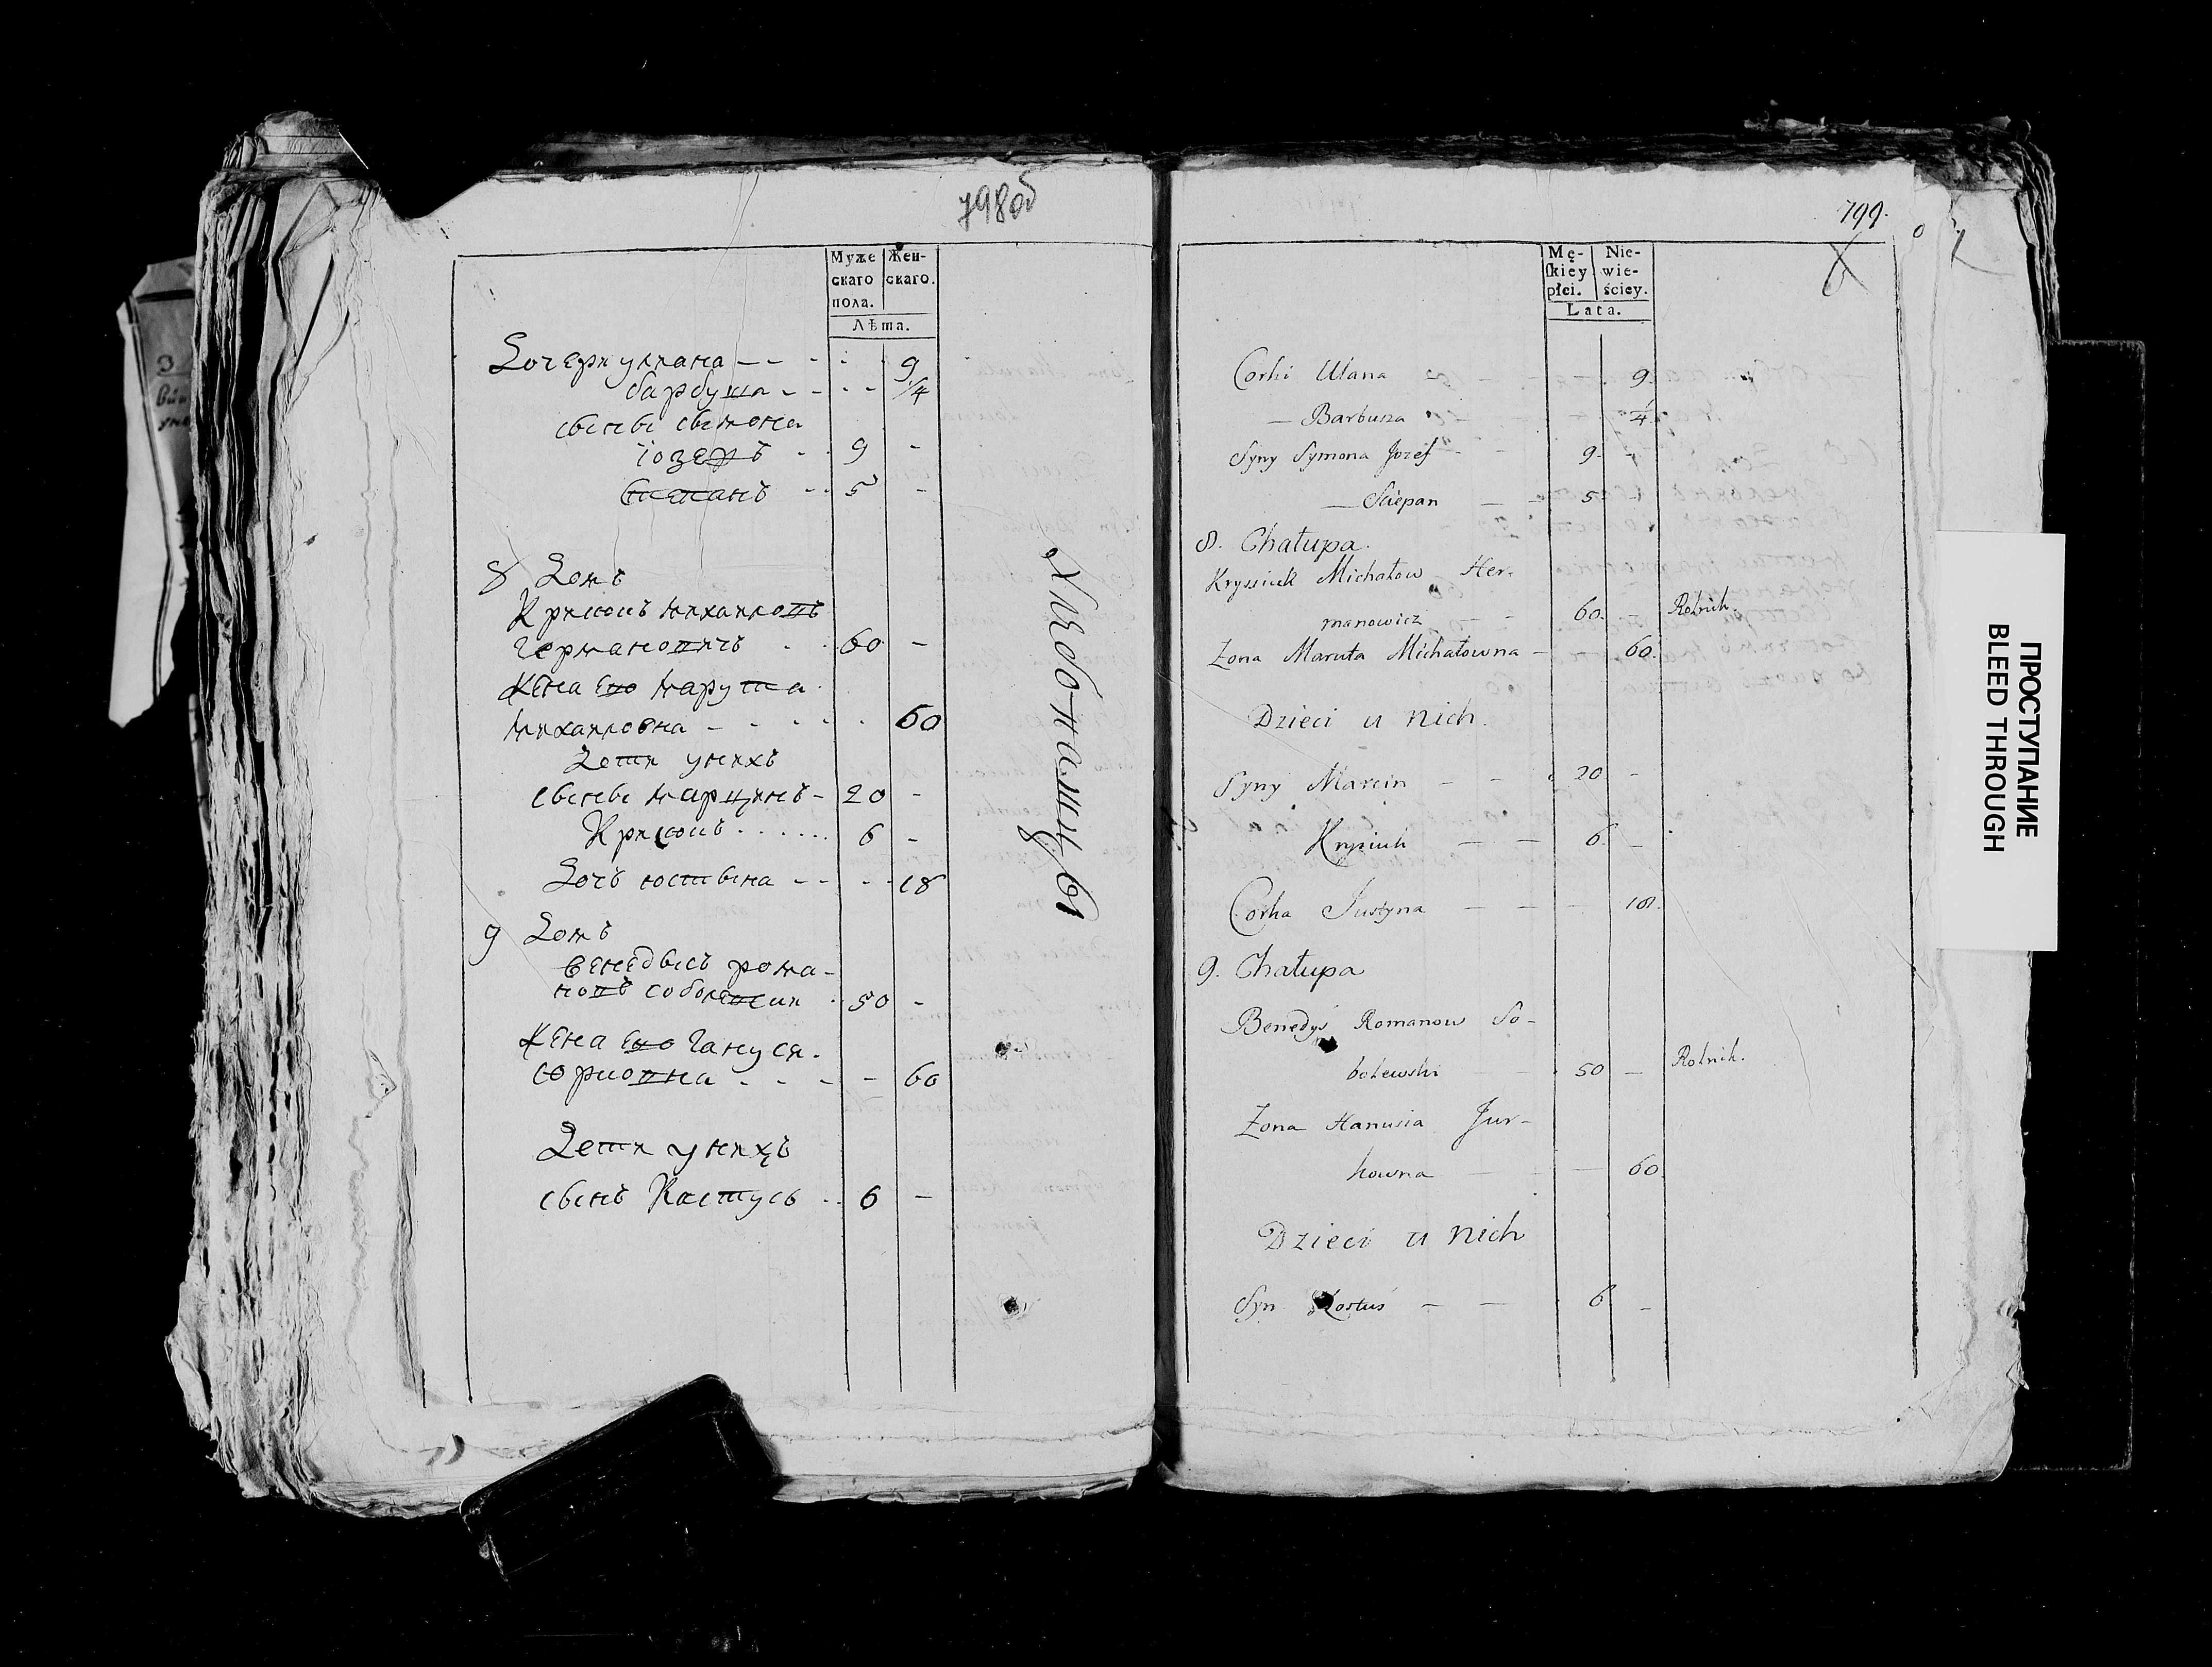 798об
Муже Жен-
скаго скаго.
пола.
Лѣта.
Дочери уляна - - - - 9
барбуша - - - - 1/4
сыны сымона
іозефъ - 9 -
степанъ - - 5 -
8 Домъ
Крисюкъ михаиловъ
германовичъ - - 60 -
жена его марута
михаиловна - - - - - 60
Дети унихъ
сыны марцинъ - 20 -
Крисюкъ - - - - 6 -
Дочъ юстына - - - - 18
9 Домъ
бенедысъ рома-
новъ соболевски - 50 -
жена его гануся
юрковна - - - - 60
Дети унихъ
сынъ Кастусь - - 6 -
Хлебопамцы
799.
Mę- Nie-
skiey wie-
płci. ściey.
Lata.
Corki Ulana - - - 9.
— Barbusza 1/4
Syny Symona Jozef - - 9. -
— Sciepan — — 5 -
8. Chałupa.
Krysiuk Michałow Her-
manowicz - - 60. - Rolnik.
Zona Maruta Michałowna - 60.
Dzieci u nich.
Syny Marcin - - 20 -
Krysiuk — — 6. -
Corka Justyna — — — 18.
9. Chałupa
Benedyś Romanow So-
bolewski — 50 — Rolnik.
Zona Hanusia Jur-
kowna — — 60.
Dzieci u nich
Syn Kostuś — — 6 -
ПРОСТУПАНИЕ
BLEED THROUGH